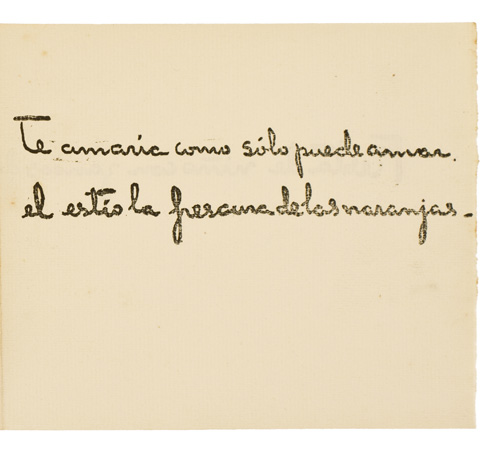 Te amaría como sólo puede amar.
el estío la frescura de las naranjas.